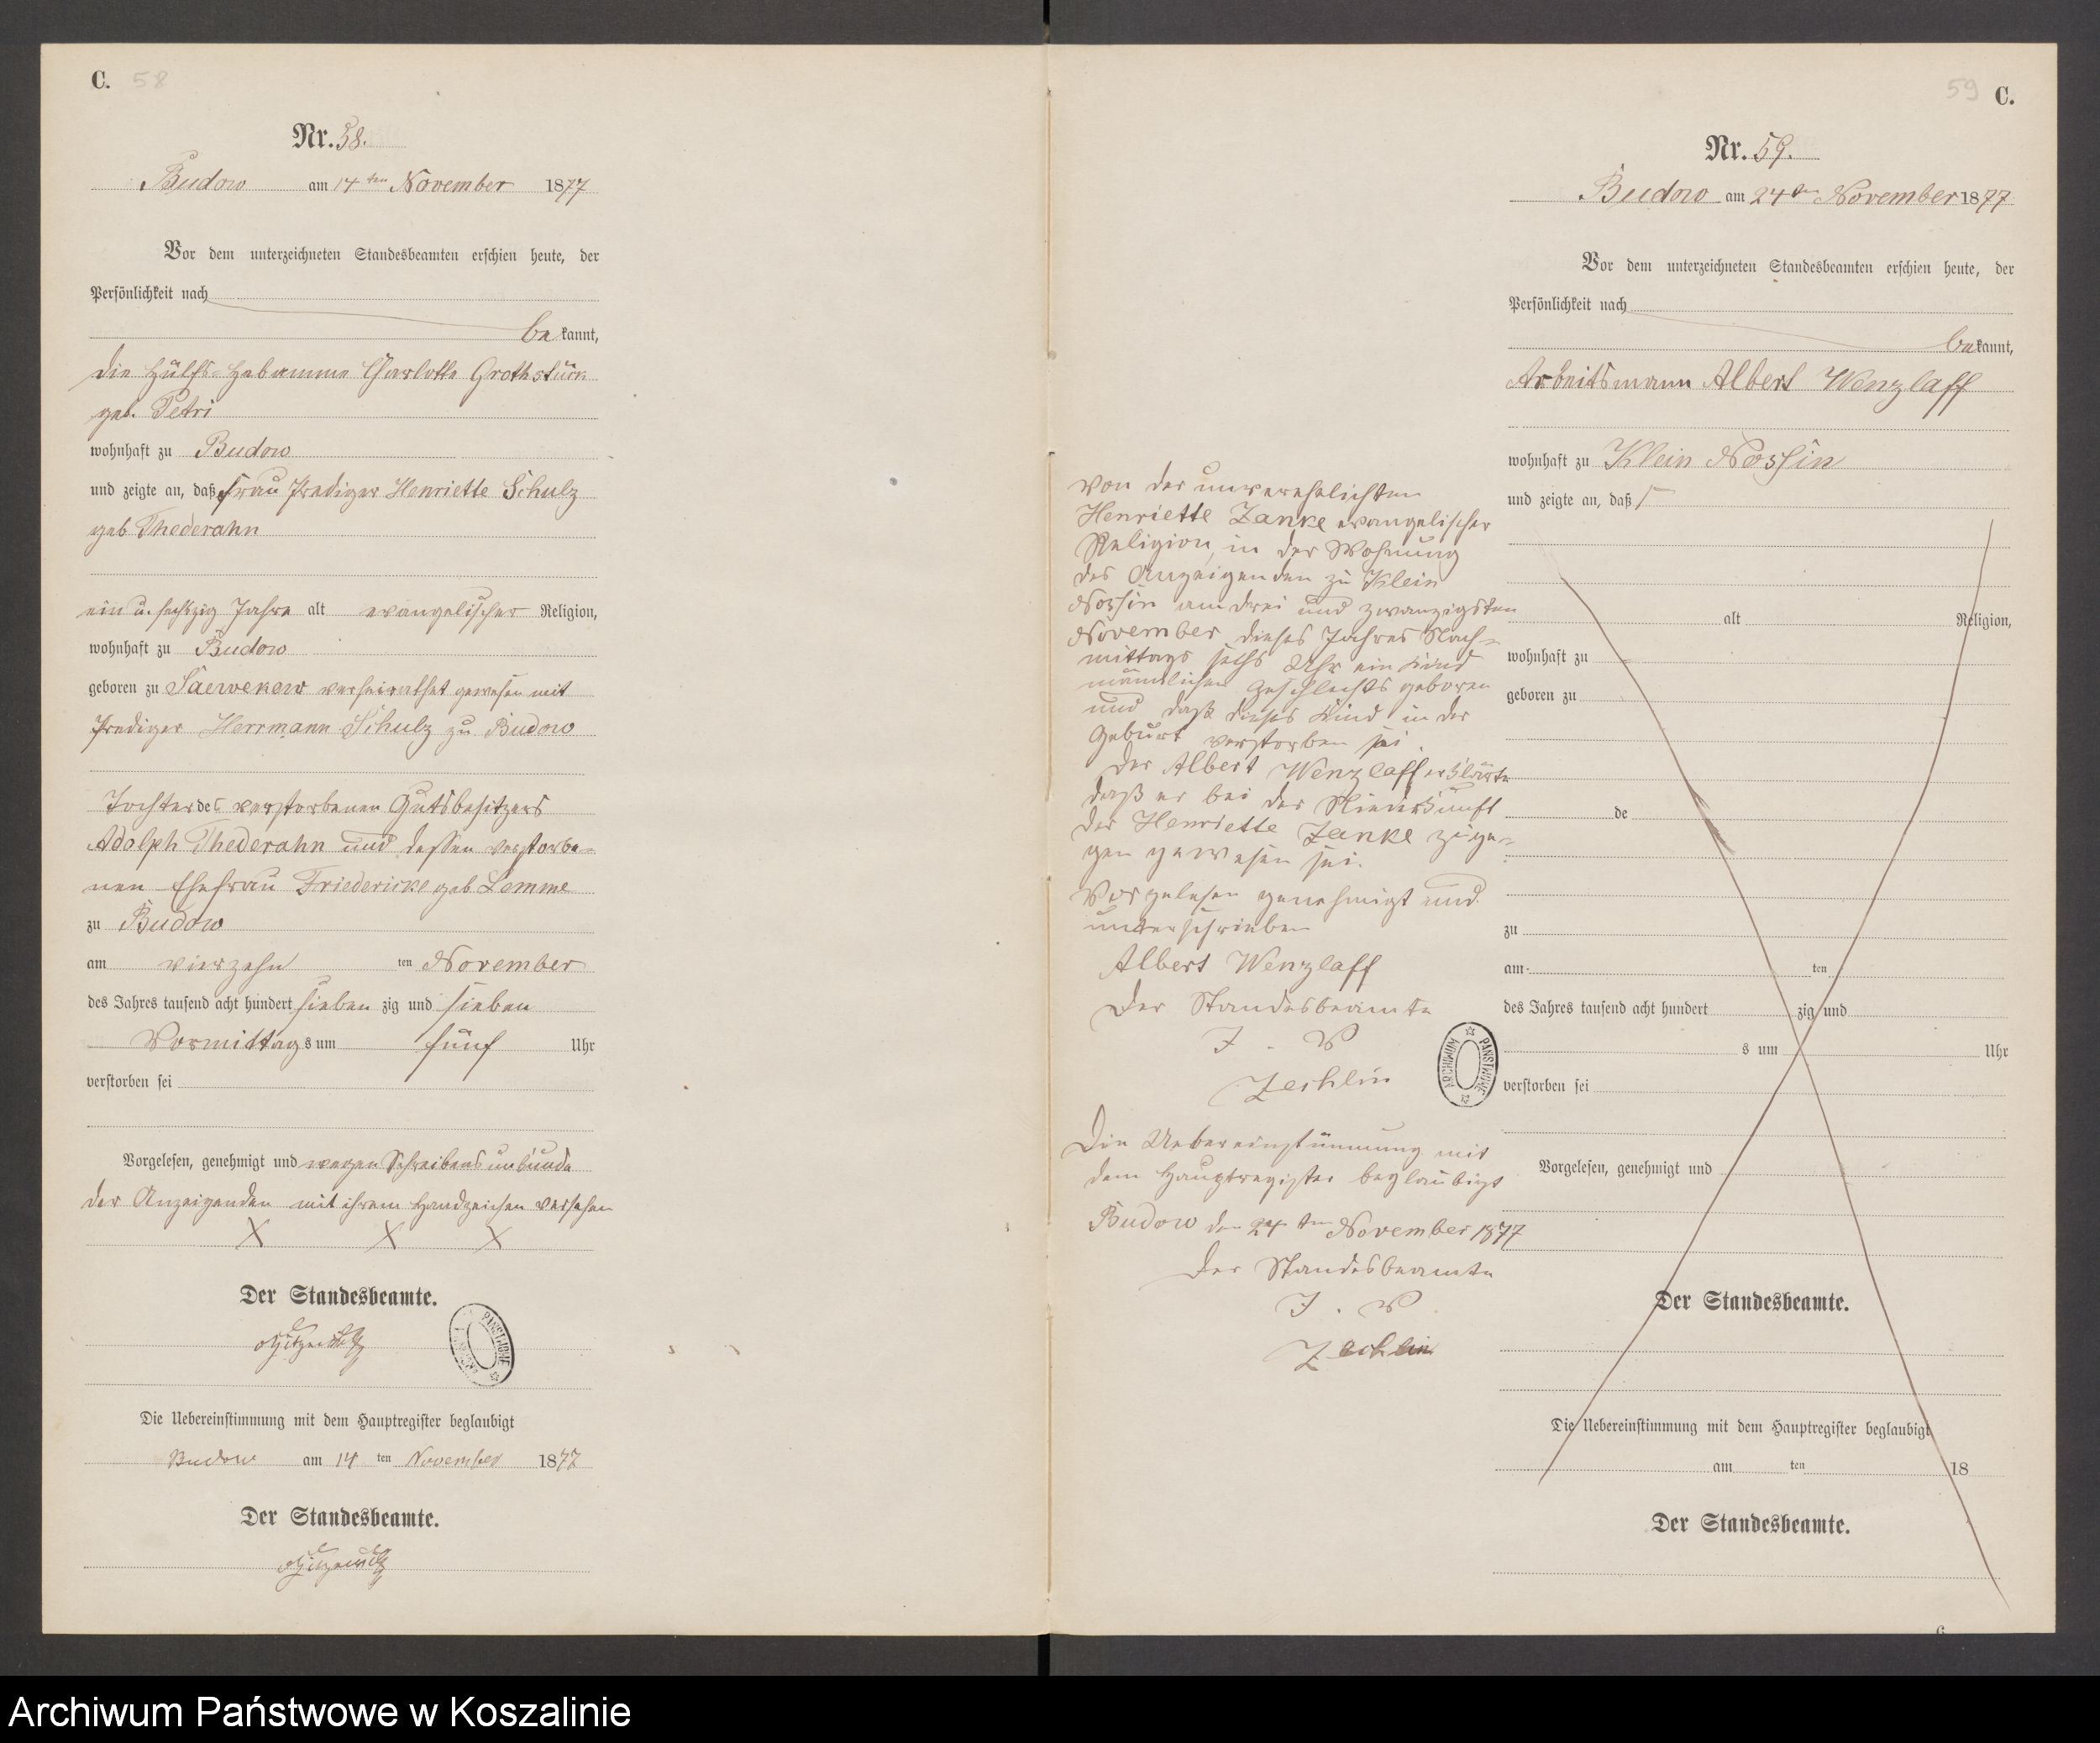 C. 58
Nr. 58.
Budow am 14ten November 1877
Vor dem unterzeichneten Standesbeamten erschien heute, der
Persönlichkeit nach
bekannt,
die Hülfs-Hebamme Charlotte Grothstück
geb. Petri
wohnhaft zu Budow
und zeigte an, daß Frau Prediger Henriette Schulz
geb Thederahn
ein u. sechszig Jahre alt evangelischer Religion,
wohnhaft zu Budow
geboren zu Saewekow verheirathet gewesen mit
Prediger Herrmann Schulz zu Budow
Tochter des verstorbenen Gutsbesitzers
Adolph Thederahn und dessen verstorbe-
nen Ehefrau Friedericke geb. Lemme
zu Budow
am vierzehn ten November
des Jahres tausend acht hundert sieben zig und sieben
Vormittags um fünf Uhr
verstorben sei
Vorgelesen, genehmigt und wegen Schreibensunkunde
der Anzeigenden mit ihrem Handzeichen versehen
X X X
Der Standesbeamte.
Die Uebereinstimmung mit dem Hauptregister beglaubigt
Budow am 14 ten November 1877
Der Standesbeamte.
59 C.
Nr. 59.
Budow am 24ten November 1877
Vor dem unterzeichneten Standesbeamten erschien heute, der
Persönlichkeit nach
bekannt,
Arbeitsmann Albert Wenzlaff
wohnhaft zu Klein Nossin
und zeigte an, daß
von der unverehelichten
Henriette Zanke evangelischer
Religion, in der Wohnung
des Anzeigenden zu Klein
Nossin am drei und zwanzigsten
November dieses Jahres Nach-
mittags sechs Uhr ein Kind
männlichen Geschlechts geboren
und daß dieses Kind in der
Geburt verstorben sei.
Der Albert Wenzlaff erklärte
daß er bei der Niederkunft
der Henriette Zanke zuge-
gen gewesen sei.
Vorgelesen genehmigt und
unterschrieben
Albert Wenzlaff
Der Standesbeamte
J. V.
Zechlin
Die Uebereinstimmung mit
dem Hauptregister beglaubigt
Budow den 24ten November 1877
Der Standesbeamte
J. V.
Zechlin
ARCHIWUM PAŃSTWOWE
alt Religion,
wohnhaft zu
geboren zu
de
zu
am ten
des Jahres tausend acht hundert zig und
s um Uhr
verstorben sei
Vorgelesen, genehmigt und
Der Standesbeamte.
Die Uebereinstimmung mit dem Hauptregister beglaubigt
am ten 18
Der Standesbeamte.
Archiwum Państwowe w Koszalinie